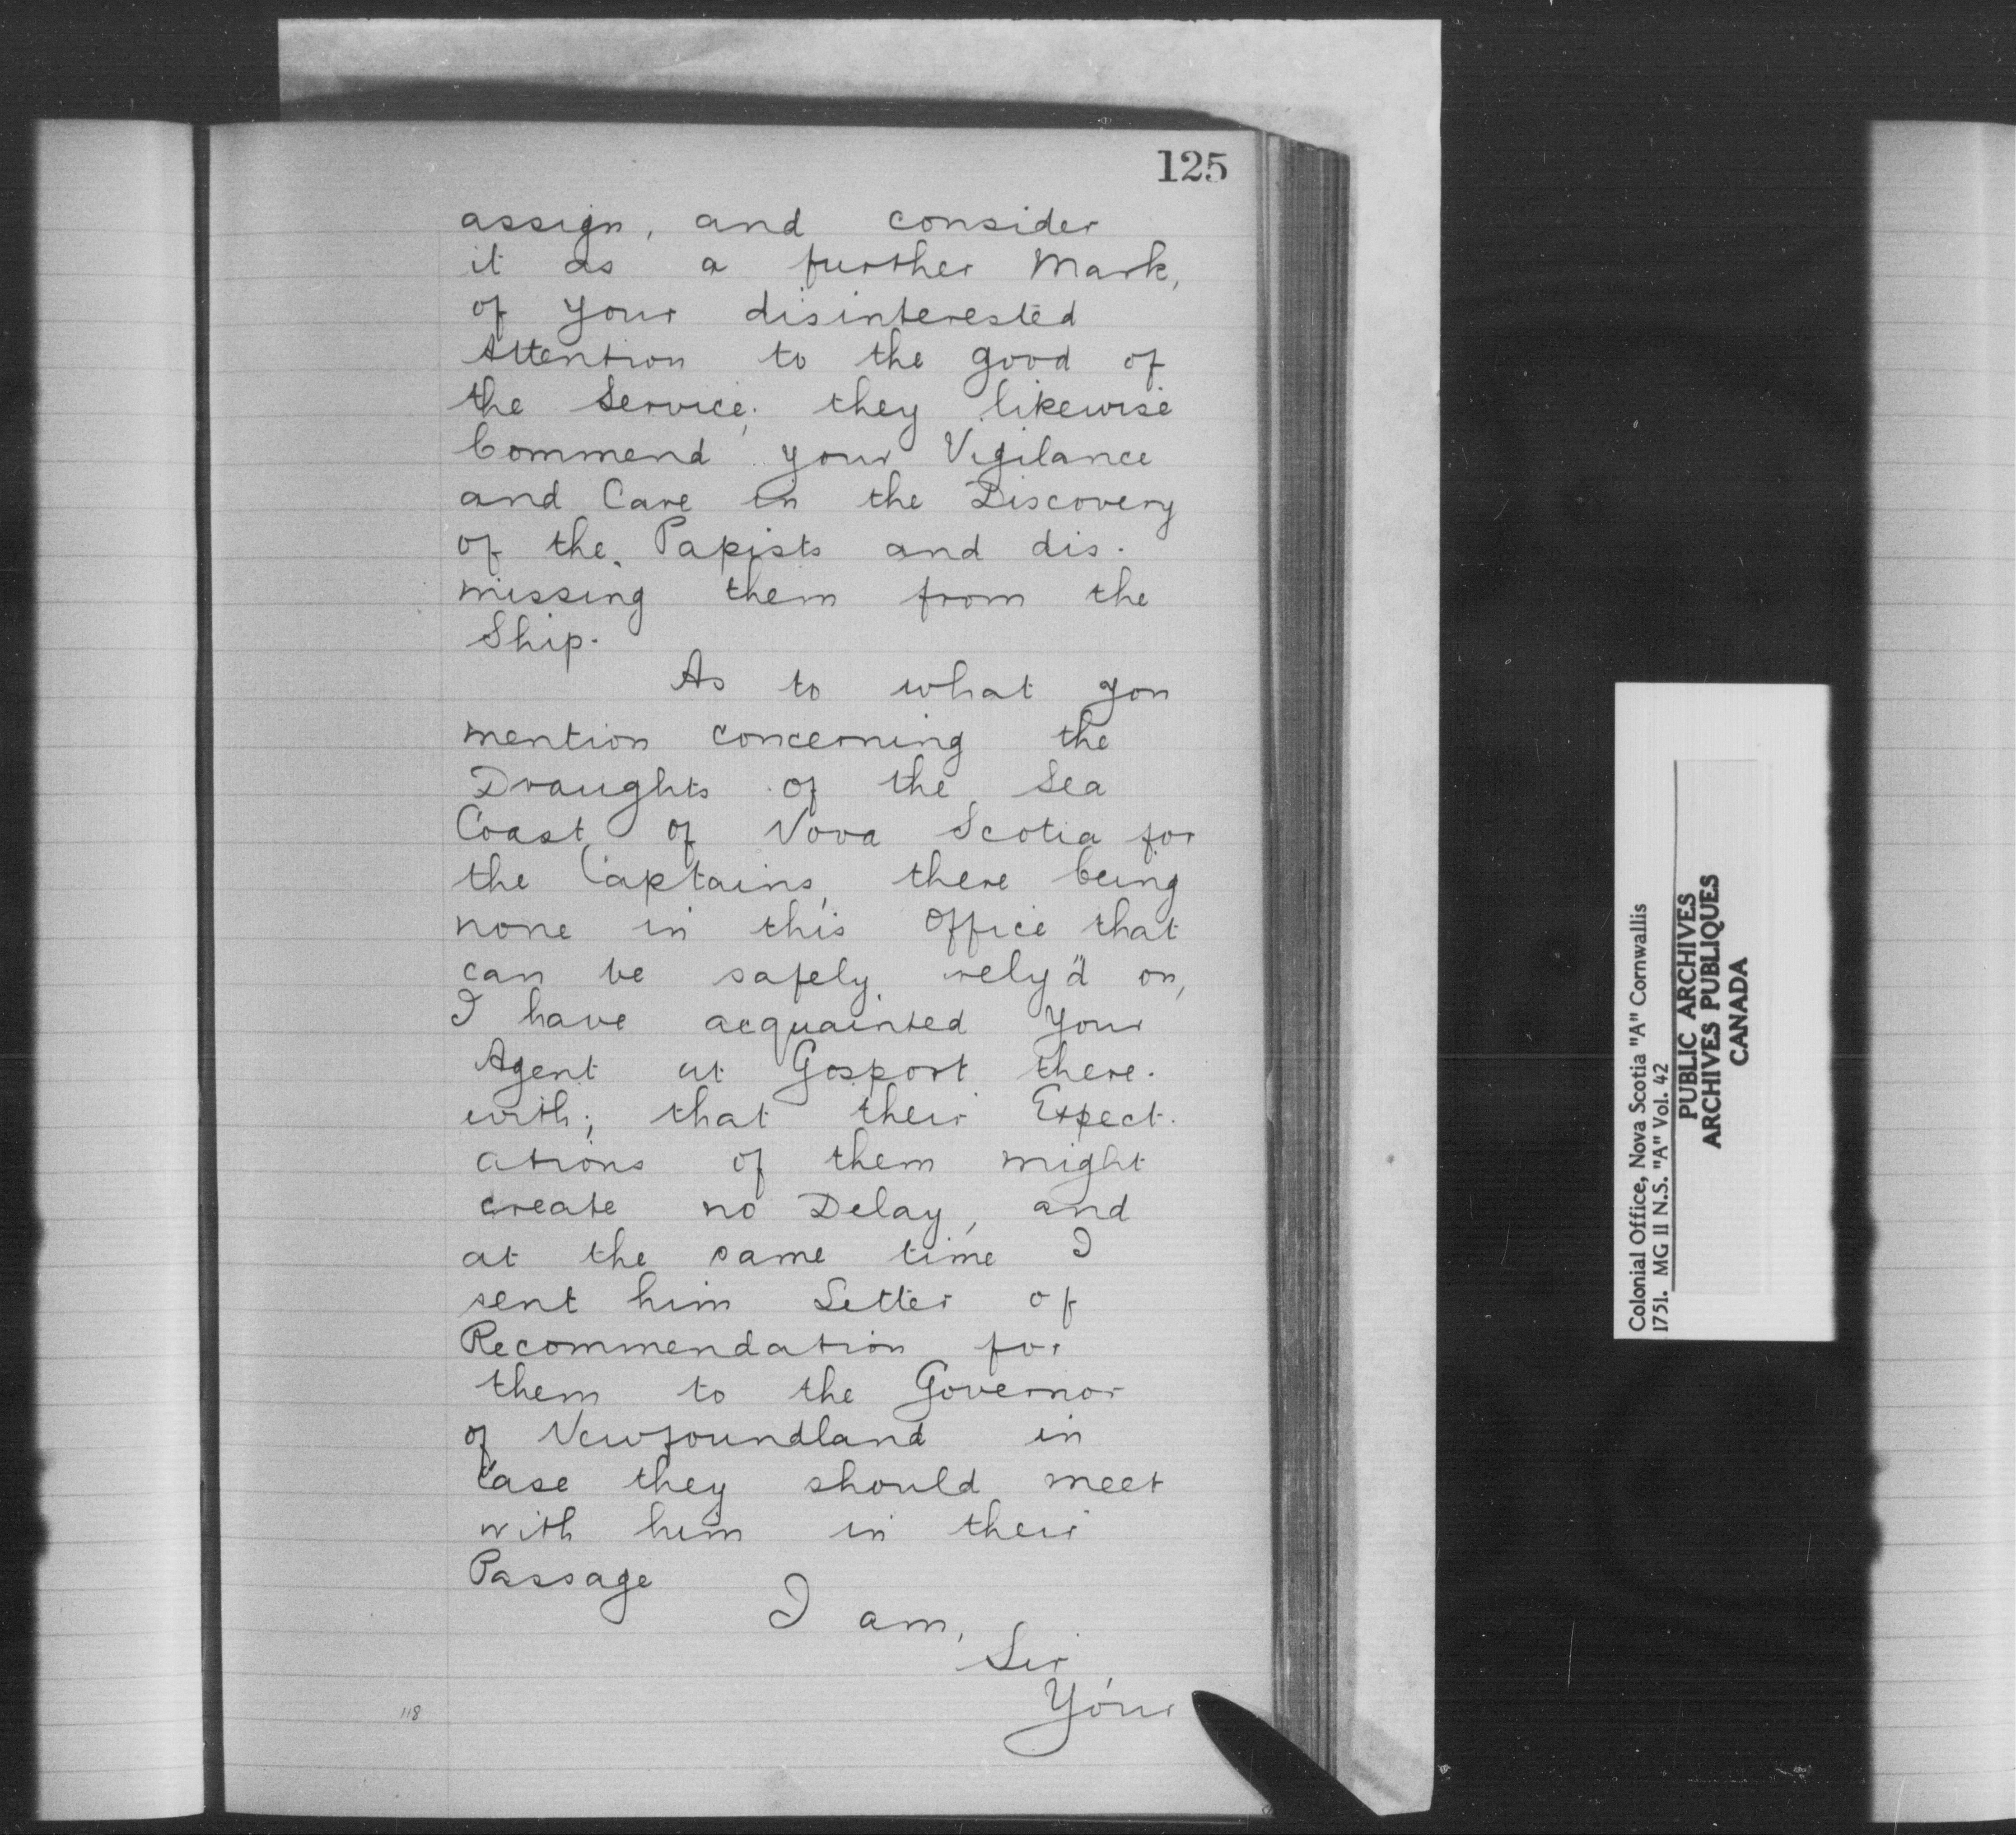 125
assign, and consider
it as a further Mark,
of your disinterested
Attention to the good of
the Service; they likewise
Commend your Vigilance
and Care in the Discovery
of the Papists and dis-
missing them from the
Ship.
As to what you
mention concerning the
Draughts of the Sea
Coast of Nova Scotia for
the Captains, there being
none in this Office that
can be safely rely'd on,
I have acquainted your
Agent at Gosport there-
with; that their Expect-
ations of them might
create no Delay, and
at the same time I
sent him Letter of
Recommendation for
them to the Governor
of Newfoundland in
Case they should meet
with him in their
Passage
I am,
Sir
Your
118
Colonial Office, Nova Scotia "A" Cornwallis
1751. MG 11 N.S. "A" Vol. 42
PUBLIC ARCHIVES
ARCHIVES PUBLIQUES
CANADA